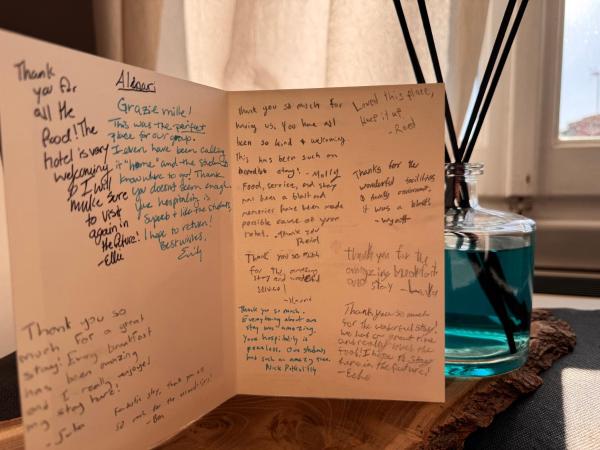 Thank
you for
all the
food! The
hotel is very
welcoming
& I will
make sure
to visit
again in
the future!
- Ellie
Grazie mille!
This was the perfect
place for our group.
I even have been calling
it "home" and the students
knew where to go! Thank
you doesn't seem enough.
The hospitality is
superb & like the students,
I hope to return!
Best wishes,
Emily
Thank you so
much for a great
stay! Every breakfast
has been amazing
and I really enjoyed
my stay here!
fantastic stay, thank you all
so much for the
- Ben
Thank you so much for
having us. You have all
been so kind & welcoming
This has been such an
stay! - Molly
Food, service, and stay
has been a blast and
memories have been made
possible cause of your
hotel. Thank you
Thank you so much
for the amazing
stay and
service!
Thank you so much.
Everything about our
stay was amazing.
Your hospitality is
peerless. Our students
had such an amazing time.
Nick
Loved this place,
keep it up
- Reed
Thanks for the
wonderful facilities
& lovely environment,
it was a blast.
- Wyatt
Thank you for the
amazing breakfast
and stay
Thank you so much
for the wonderful stay!
we had a great time
and really loved the
food! I hope to stay
here in the future!
- Echo